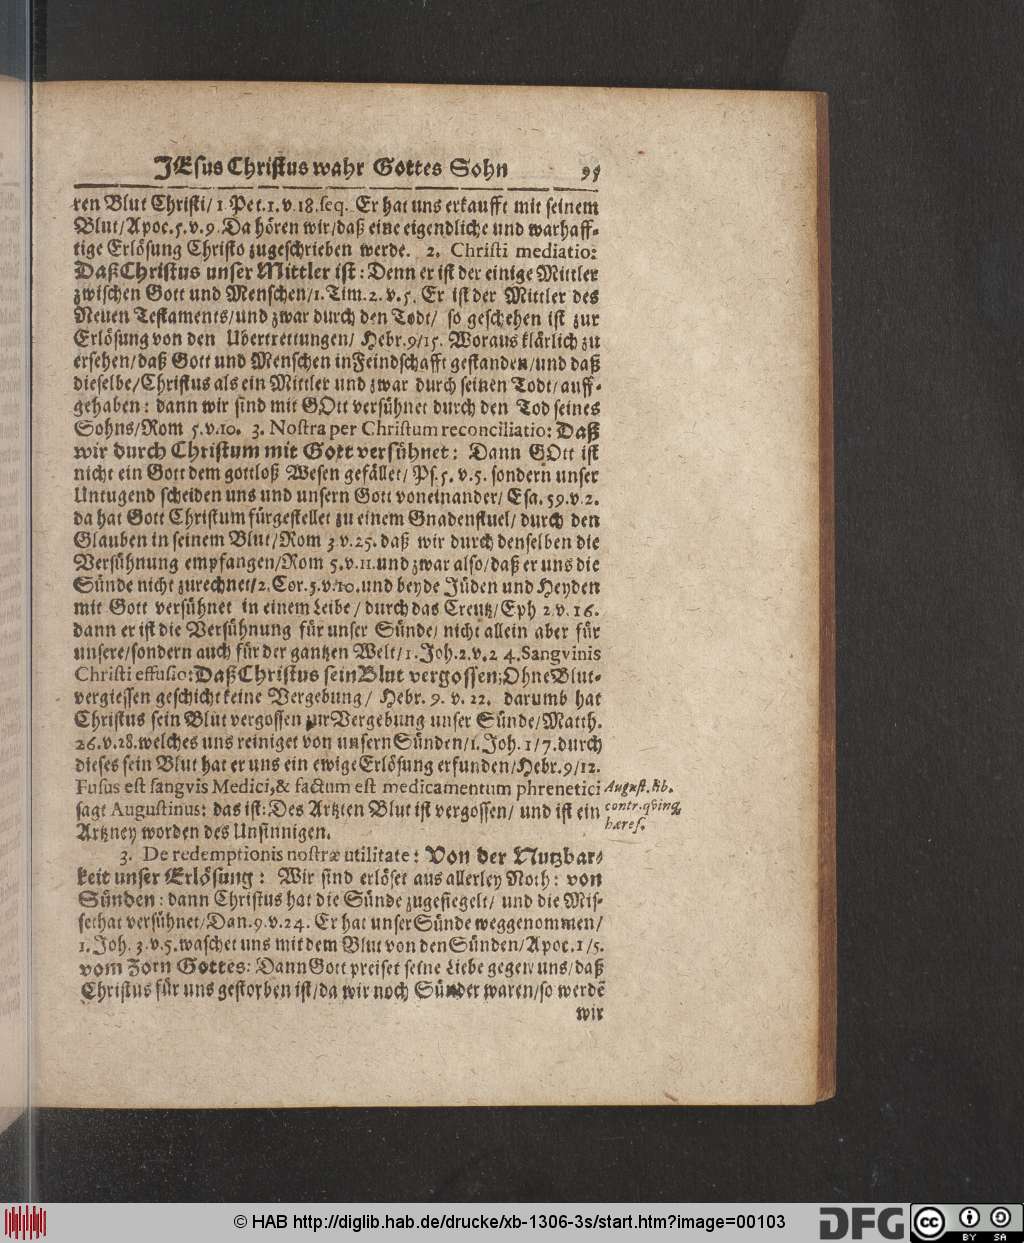 JEsus Christus wahr Gottes Sohn 95
ren Blut Christi/ 1 Pet. 1. v. 18. seq. Er hat uns erkaufft mit seinem
Blut/ Apoc. 5. v. 9. Da hören wir/ daß eine eigendliche und warhaff-
tige Erlösung Christo zugeschrieben werde. 2. Christi mediatio:
Daß Christus unser Mittler ist: Denn er ist der einige Mittler
zwischen Gott und Menschen/ 1. Tim. 2. v. 5. Er ist der Mittler des
Neuen Testaments/ und zwar durch den Todt/ so geschehen ist zur
Erlösung von den Ubertrettungen/ Hebr. 9/15. Woraus klärlich zu
ersehen/ daß Gott und Menschen in Feindschafft gestanden/ und daß
dieselbe/ Christus als ein Mittler und zwar durch seinen Todt/ auff-
gehaben: dann wir sind mit GOtt versühnet durch den Tod seines
Sohns/ Rom 5. v. 10. 3. Nostra per Christum reconciliatio: Daß
wir durch Christum mit Gott versühnet: Dann GOtt ist
nicht ein Gott dem gottloß Wesen gefället/ Ps. 5. v. 5. sondern unser
Untugend scheiden uns und unsern Gott voneinander/ Esa. 59. v. 2.
da hat Gott Christum fürgestellet zu einem Gnadenstuel/ durch den
Glauben in seinem Blut/ Rom 3 v. 25. daß wir durch denselben die
Versühnung empfangen/ Rom 5. v. 11. und zwar also/ daß er uns die
Sünde nicht zurechnet/ 2. Cor. 5. v. 10. und beyde Jüden und Heyden
mit Gott versühnet in einem Leibe/ durch das Creutz/ Eph 2. v. 16.
dann er ist die Versühnung für unser Sünde/ nicht allein aber für
unsere/ sondern auch für der gantzen Welt/ 1. Joh. 2. v. 2 4. Sangvinis
Christi effusio: Daß Christus sein Blut vergossen; Ohne Blut-
vergiessen geschicht keine Vergebung/ Hebr. 9. v. 22. darumb hat
Christus sein Blut vergossen zur Vergebung unser Sünde/ Matth.
26. v. 28. welches uns reiniget von unsern Sünden/ 1. Joh. 1/7. durch
dieses sein Blut hat er uns ein ewige Erlösung erfunden/ Hebr. 9/12.
Fusus est sangvis Medici, & factum est medicamentum phrenetici August. lib.
sagt Augustinus: das ist: Des Artzten Blut ist vergossen/ und ist ein contr. qving
Artzney worden des Unsinnigen. hæres.
3. De redemptionis nostræ utilitate: Von der Nutzbar-
keit unser Erlösung: Wir sind erlöset aus allerley Noth: von
Sünden: dann Christus hat die Sünde zugesiegelt/ und die Mis-
sethat versühnet/ Dan. 9. v. 24. Er hat unser Sünde weggenommen/
1. Joh. 3. v. 5. waschet uns mit dem Blut von den Sünden/ Apoc. 1/5.
vom Zorn Gottes: Dann Gott preiset seine Liebe gegen uns/ daß
Christus für uns gestorben ist/ da wir noch Sünder waren/ so werdē
wir
© HAB http://diglib.hab.de/drucke/xb-1306-3s/start.htm?image=00103 DFG cc BY SA